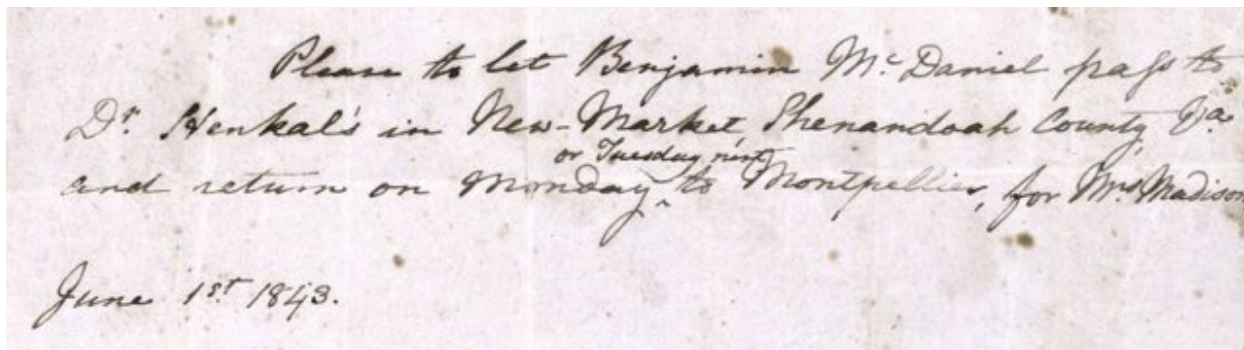 Please to let Benjamin Mc. Daniel pass to
Dr. Henkal's in New-Market, Shenandoah County, Va.
or Tuesday next
and return on Monday ^ to Montpellier, for Mrs. Madison
June 1st. 1843.